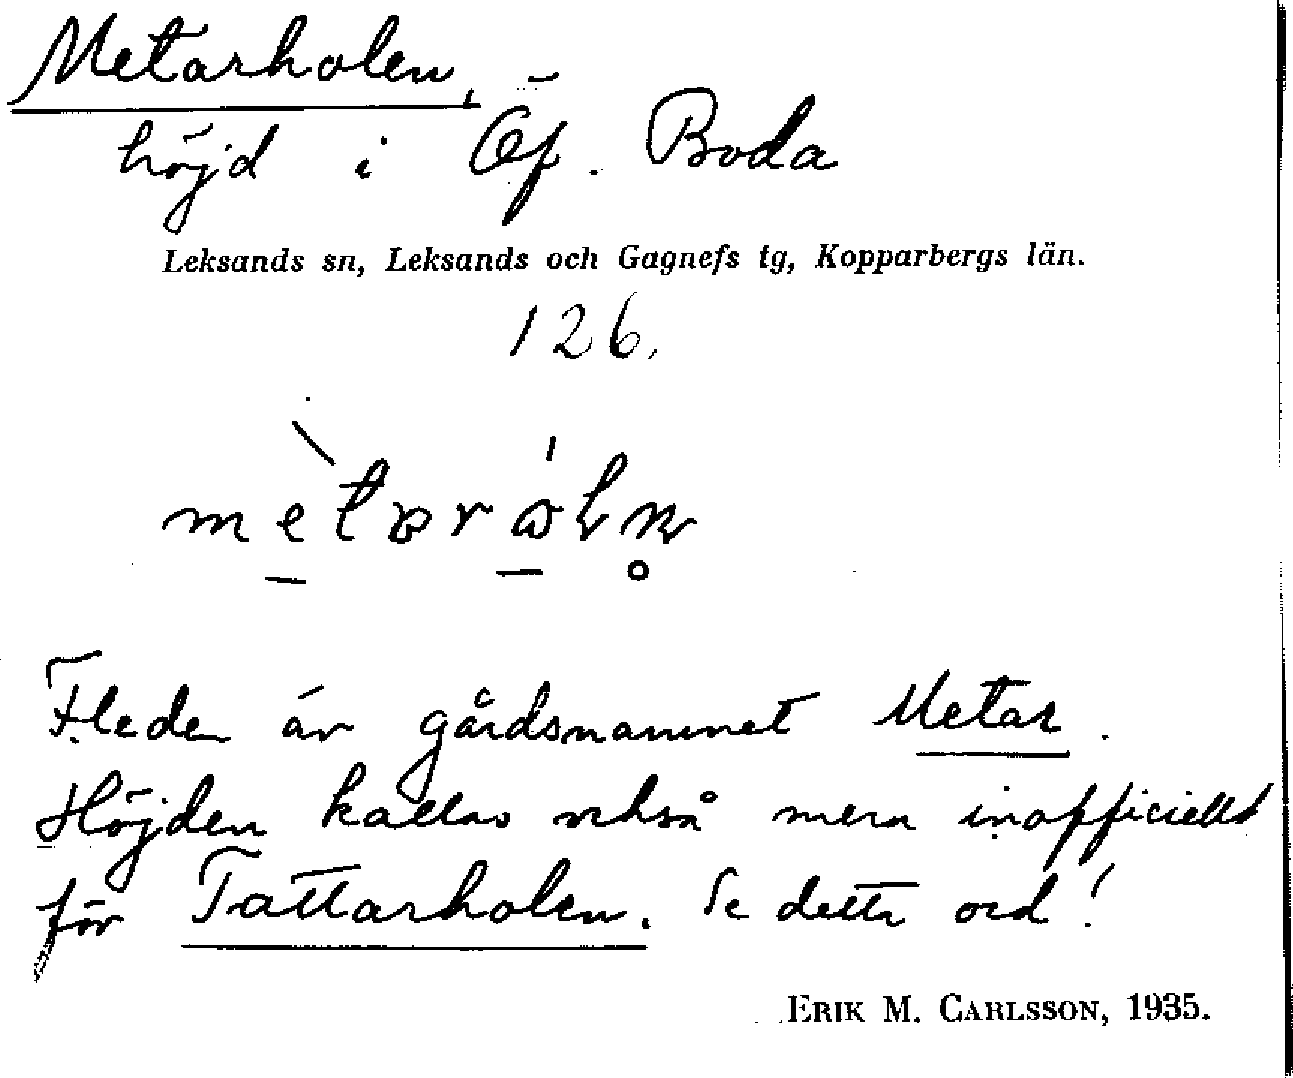 Metarholen,
höjd i Öf. Boda
Leksands sn, Leksands och Gagnefs tg, Kopparbergs län.
126.
F.leden är gårdsnamnet Metar.
Höjden kallas också mera inofficiellt
för Tattarholen. Se detta ord!
ERIK M. CARLSSON, 1935.